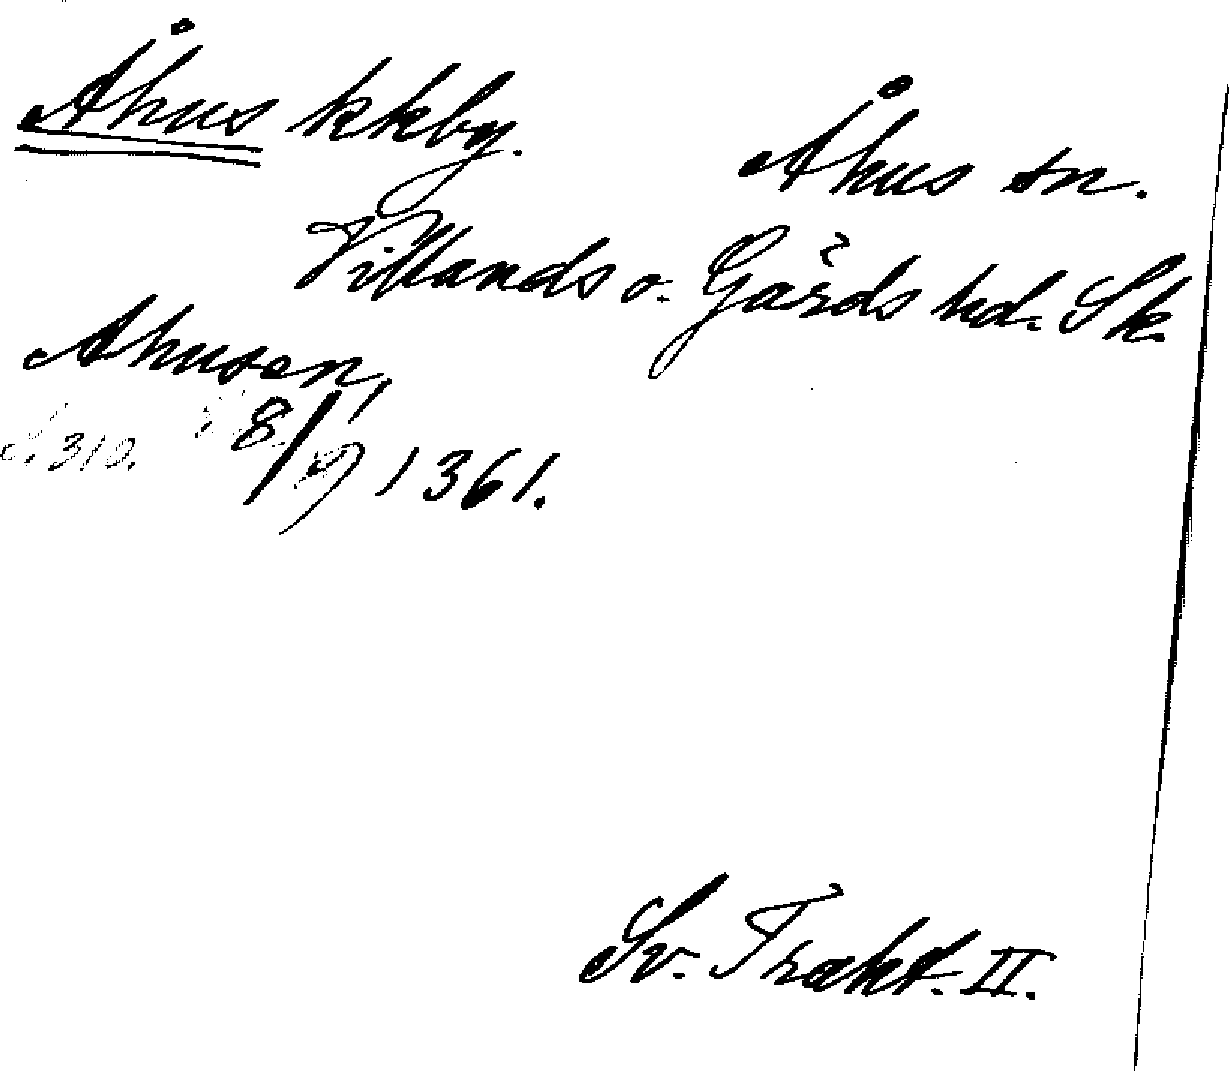 Åhus kkby.
Åhus sn.
Villands o. Gärds hd. Sk.
Ahusen,
S. 310. 8/9 1361.
Sv. Trakt. II.